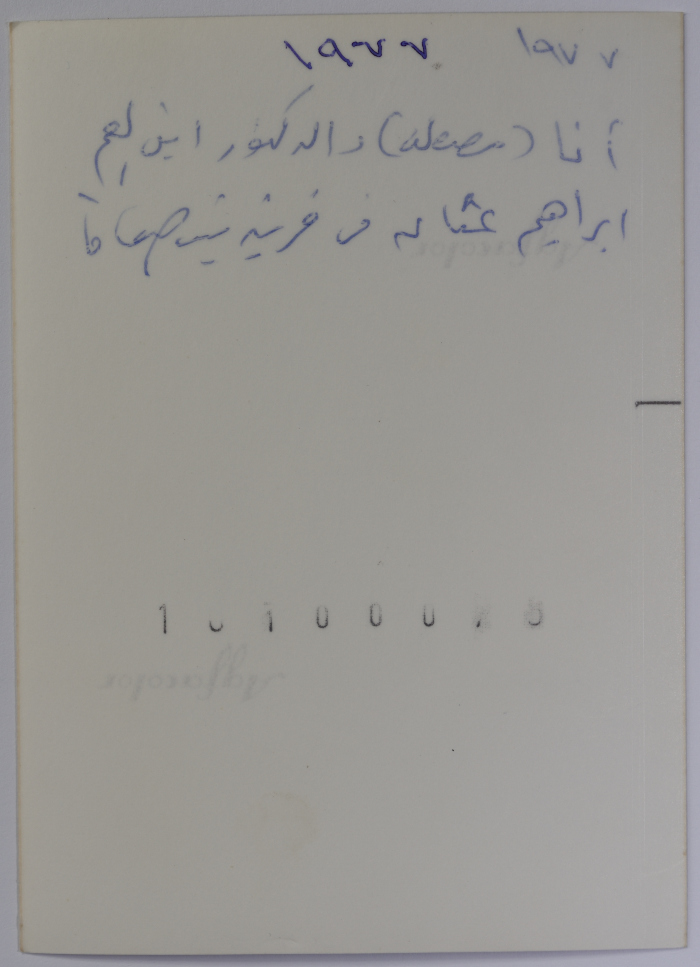 ١٩٧٧ ١٩٧٧
أنا () والدكتور ابن العم
ابراهيم عثمان في قرية
1 0 1 0 0 0
Agfacolor
Agfacolor